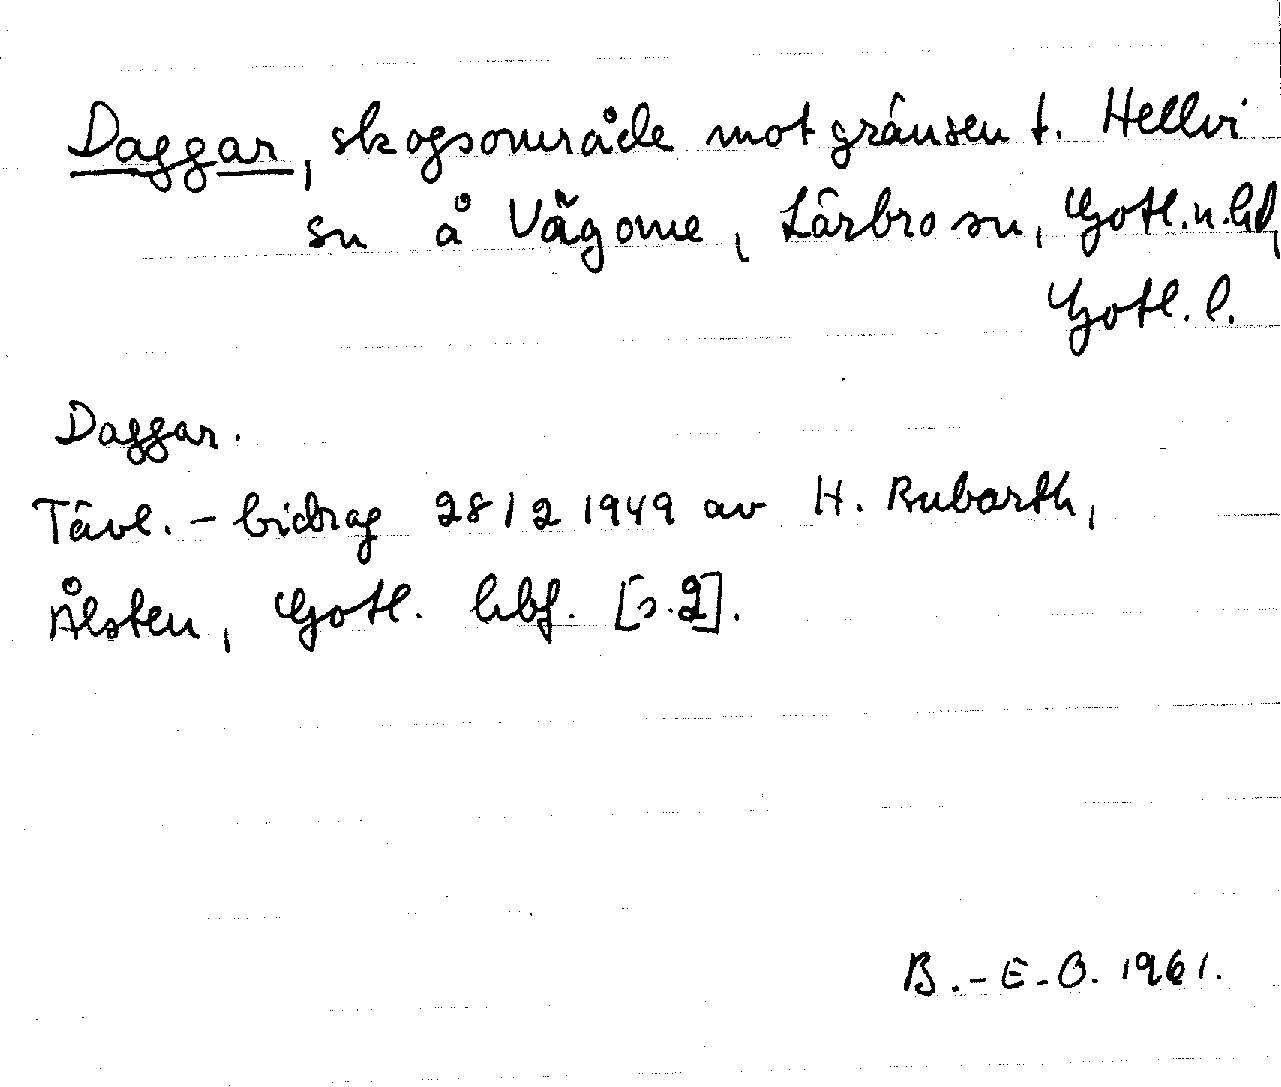 Daggar, skogsområde mot gränsen t. Hellvi
sn å Vägome, Lärbro sn, Gotl.n.hd,
Gotl. l.
Daggar.
Tävl.-bidrag 28/2 1949 av H. Rubarth,
Ålsten, Gotl. hbf. [s.2].
B.-E.O. 1961.